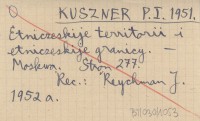 KUSZNER P.I. 1951.
Etniczeskije territorii i
etniczeskije granicy. —
Moskwa. Stron 277.
Rec.: Reychman J.
1952 a.